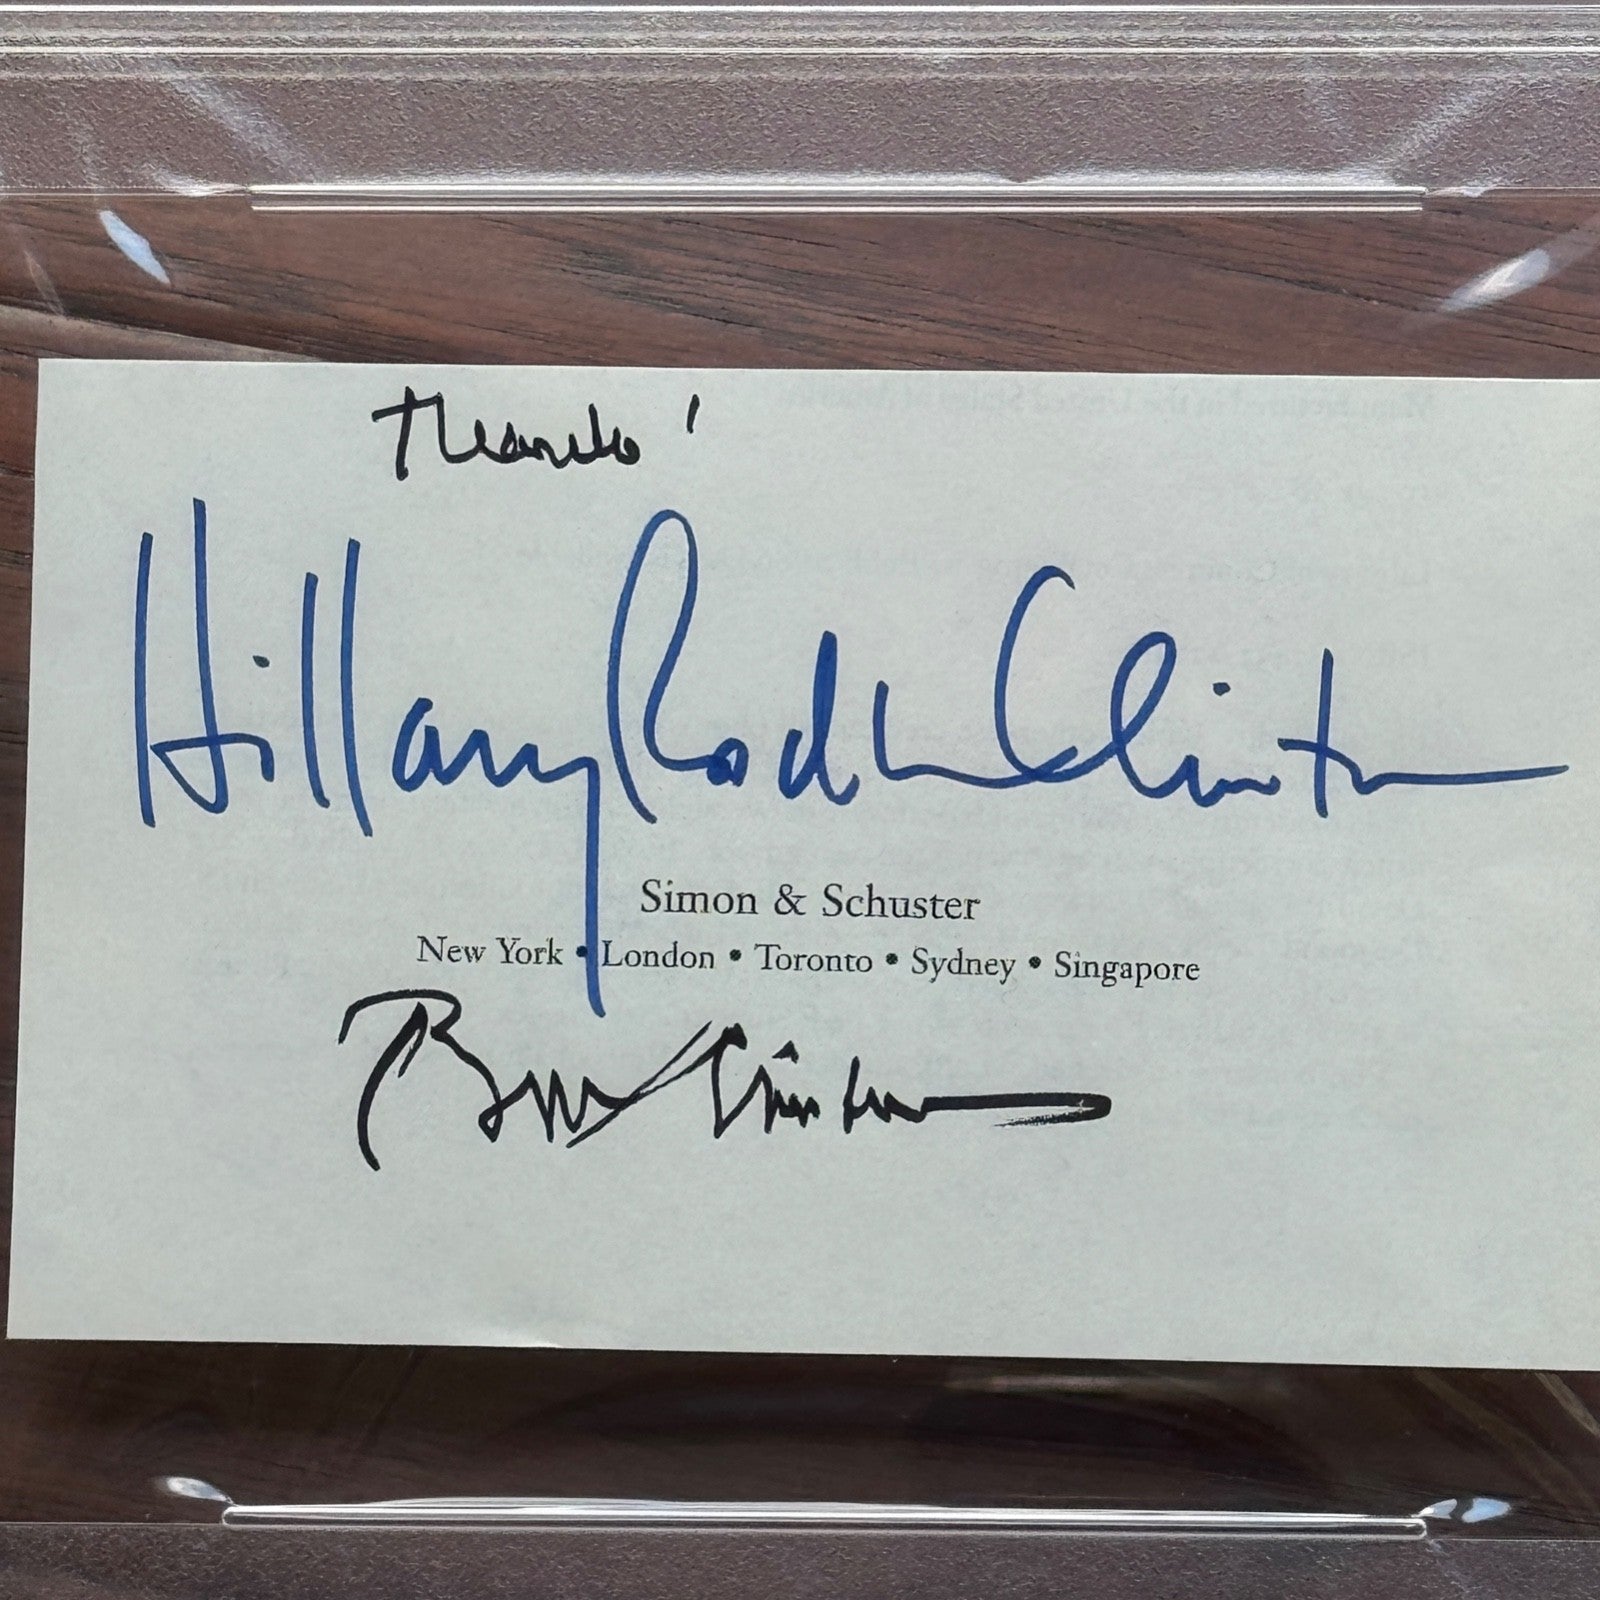 Thanks!
Hillary Rodham Clinton
Simon & Schuster
New York • London • Toronto • Sydney • Singapore
Bill Clinton